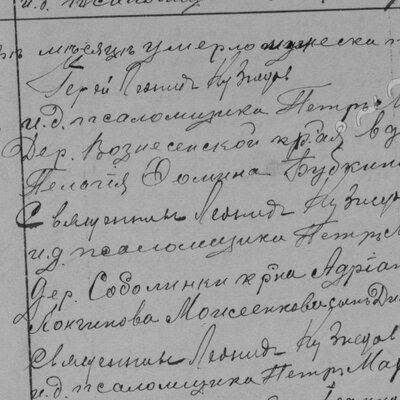 и.д. псаломщ
мѣсяцъ умерло мужеска п
Іерей Леонид Кузнецов
и.д. псаломщика Петръ М
Дер. Вознесенской кр. вд
Пелагія Фомина Бубкин
Священникъ Леонидъ Кузнецо
и.д. псаломщика Петръ М
Дер. Соболинки кр-на Адріан
Лонгинова Моисеенкова сынъ Ди
Священникъ Леонидъ Кузнецов
и.д. псаломщика Петръ Мар